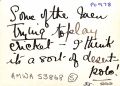 P04978
Some of the men
trying to play
cricket - I think
it's a sort of desert
polo!
AMWA 53868 (5)